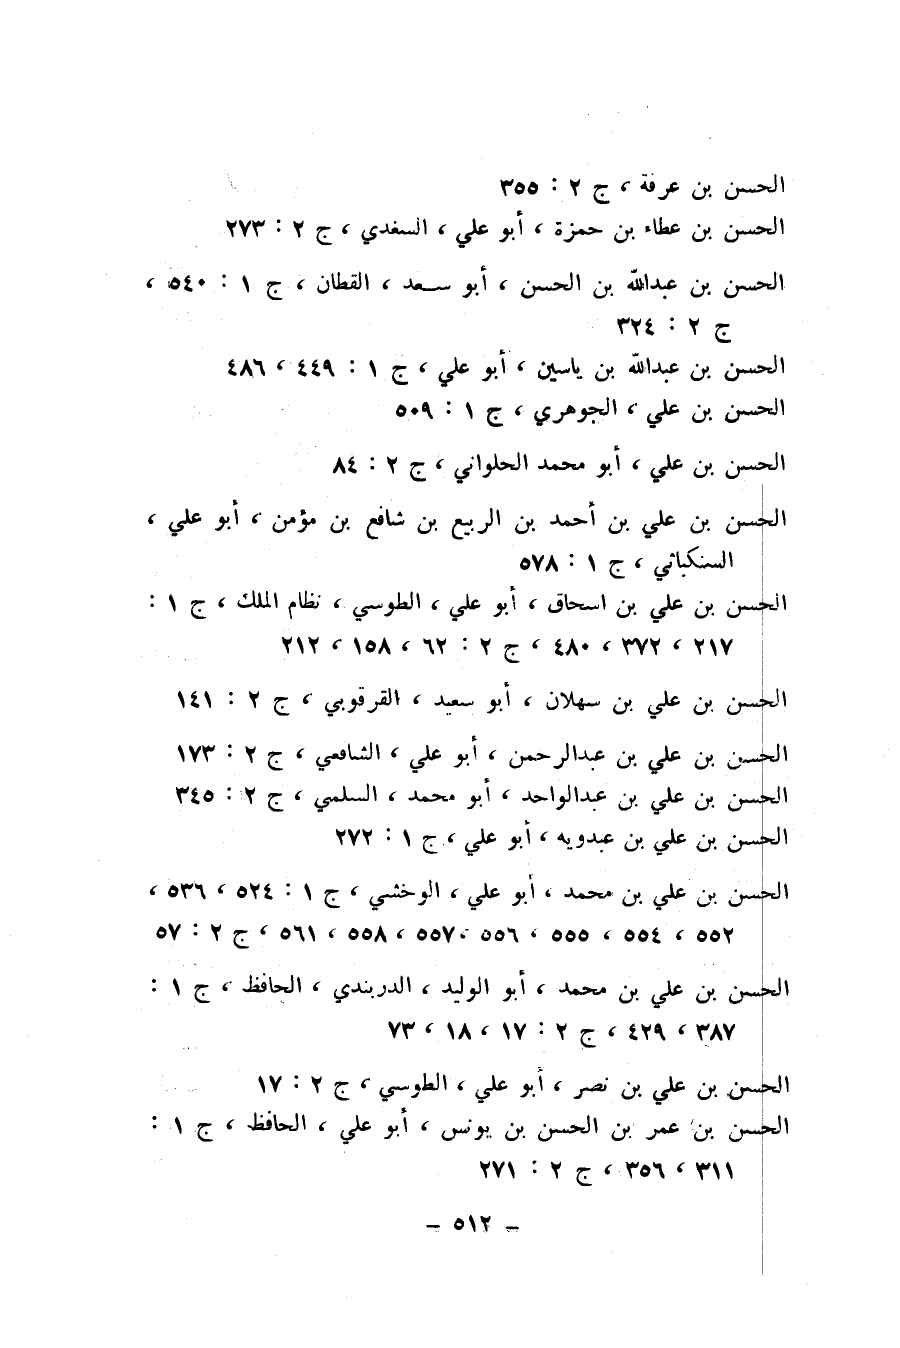 الحسن بن عرفة ، ج ٢ : ٣٥٥
الحسن بن عطاء بن حمزة ، أبو علي ، السغدي ، ج ٢ : ٢٧٣
الحسن بن عبدالله بن الحسن ، أبو سعد ، القطان ، ج ١ : ٥٤٠ ،
ج ٢ : ٣٢٤
الحسن بن عبدالله بن ياسين ، أبو علي ، ج ١ : ٤٤٩ ، ٤٨٦
الحسن بن علي ، الجوهري ، ج ١ : ٥٠٩
الحسن بن علي ، أبو محمد الحلواني ، ج ٢ : ٨٤
الحسن بن علي بن أحمد بن الربيع بن شافع بن مؤمن ، أبو علي ،
السنكباثي ، ج ١ : ٥٧٨
الحسن بن علي بن اسحاق ، أبو علي ، الطوسي ، نظام الملك ، ج ١ :
٢١٧ ، ٣٧٢ ، ٤٨٠ ، ج ٢ : ٦٢ ، ١٥٨ ، ٢١٢
الحسن بن علي بن سهلان ، أبو سعيد ، القرقوبي ، ج ٢ : ١٤١
الحسن بن علي بن عبدالرحمن ، أبو علي ، الشافعي ، ج ٢ : ١٧٣
الحسن بن علي بن عبدالواحد ، أبو محمد ، السلمي ، ج ٢ : ٣٤٥
الحسن بن علي بن عبدويه ، أبو علي ، ج ١ : ٢٧٢
الحسن بن علي بن محمد ، أبو علي ، الوخشي ، ج ١ : ٥٢٤ ، ٥٣٦ ،
٥٥٢ ، ٥٥٤ ، ٥٥٥ ، ٥٥٦ ، ٥٥٧ ، ٥٥٨ ، ٥٦١ ، ج ٢ : ٥٧
الحسن بن علي بن محمد ، أبو الوليد ، الدربندي ، الحافظ ، ج ١ :
٣٨٧ ، ٤٢٩ ، ج ٢ : ١٧ ، ١٨ ، ٧٣
الحسن بن علي بن نصر ، أبو علي ، الطوسي ، ج ٢ : ١٧
الحسن بن عمر بن الحسن بن يونس ، أبو علي ، الحافظ ، ج ١ :
٣١١ ، ٣٥٦ ، ج ٢ : ٢٧١
– ٥١٢ –